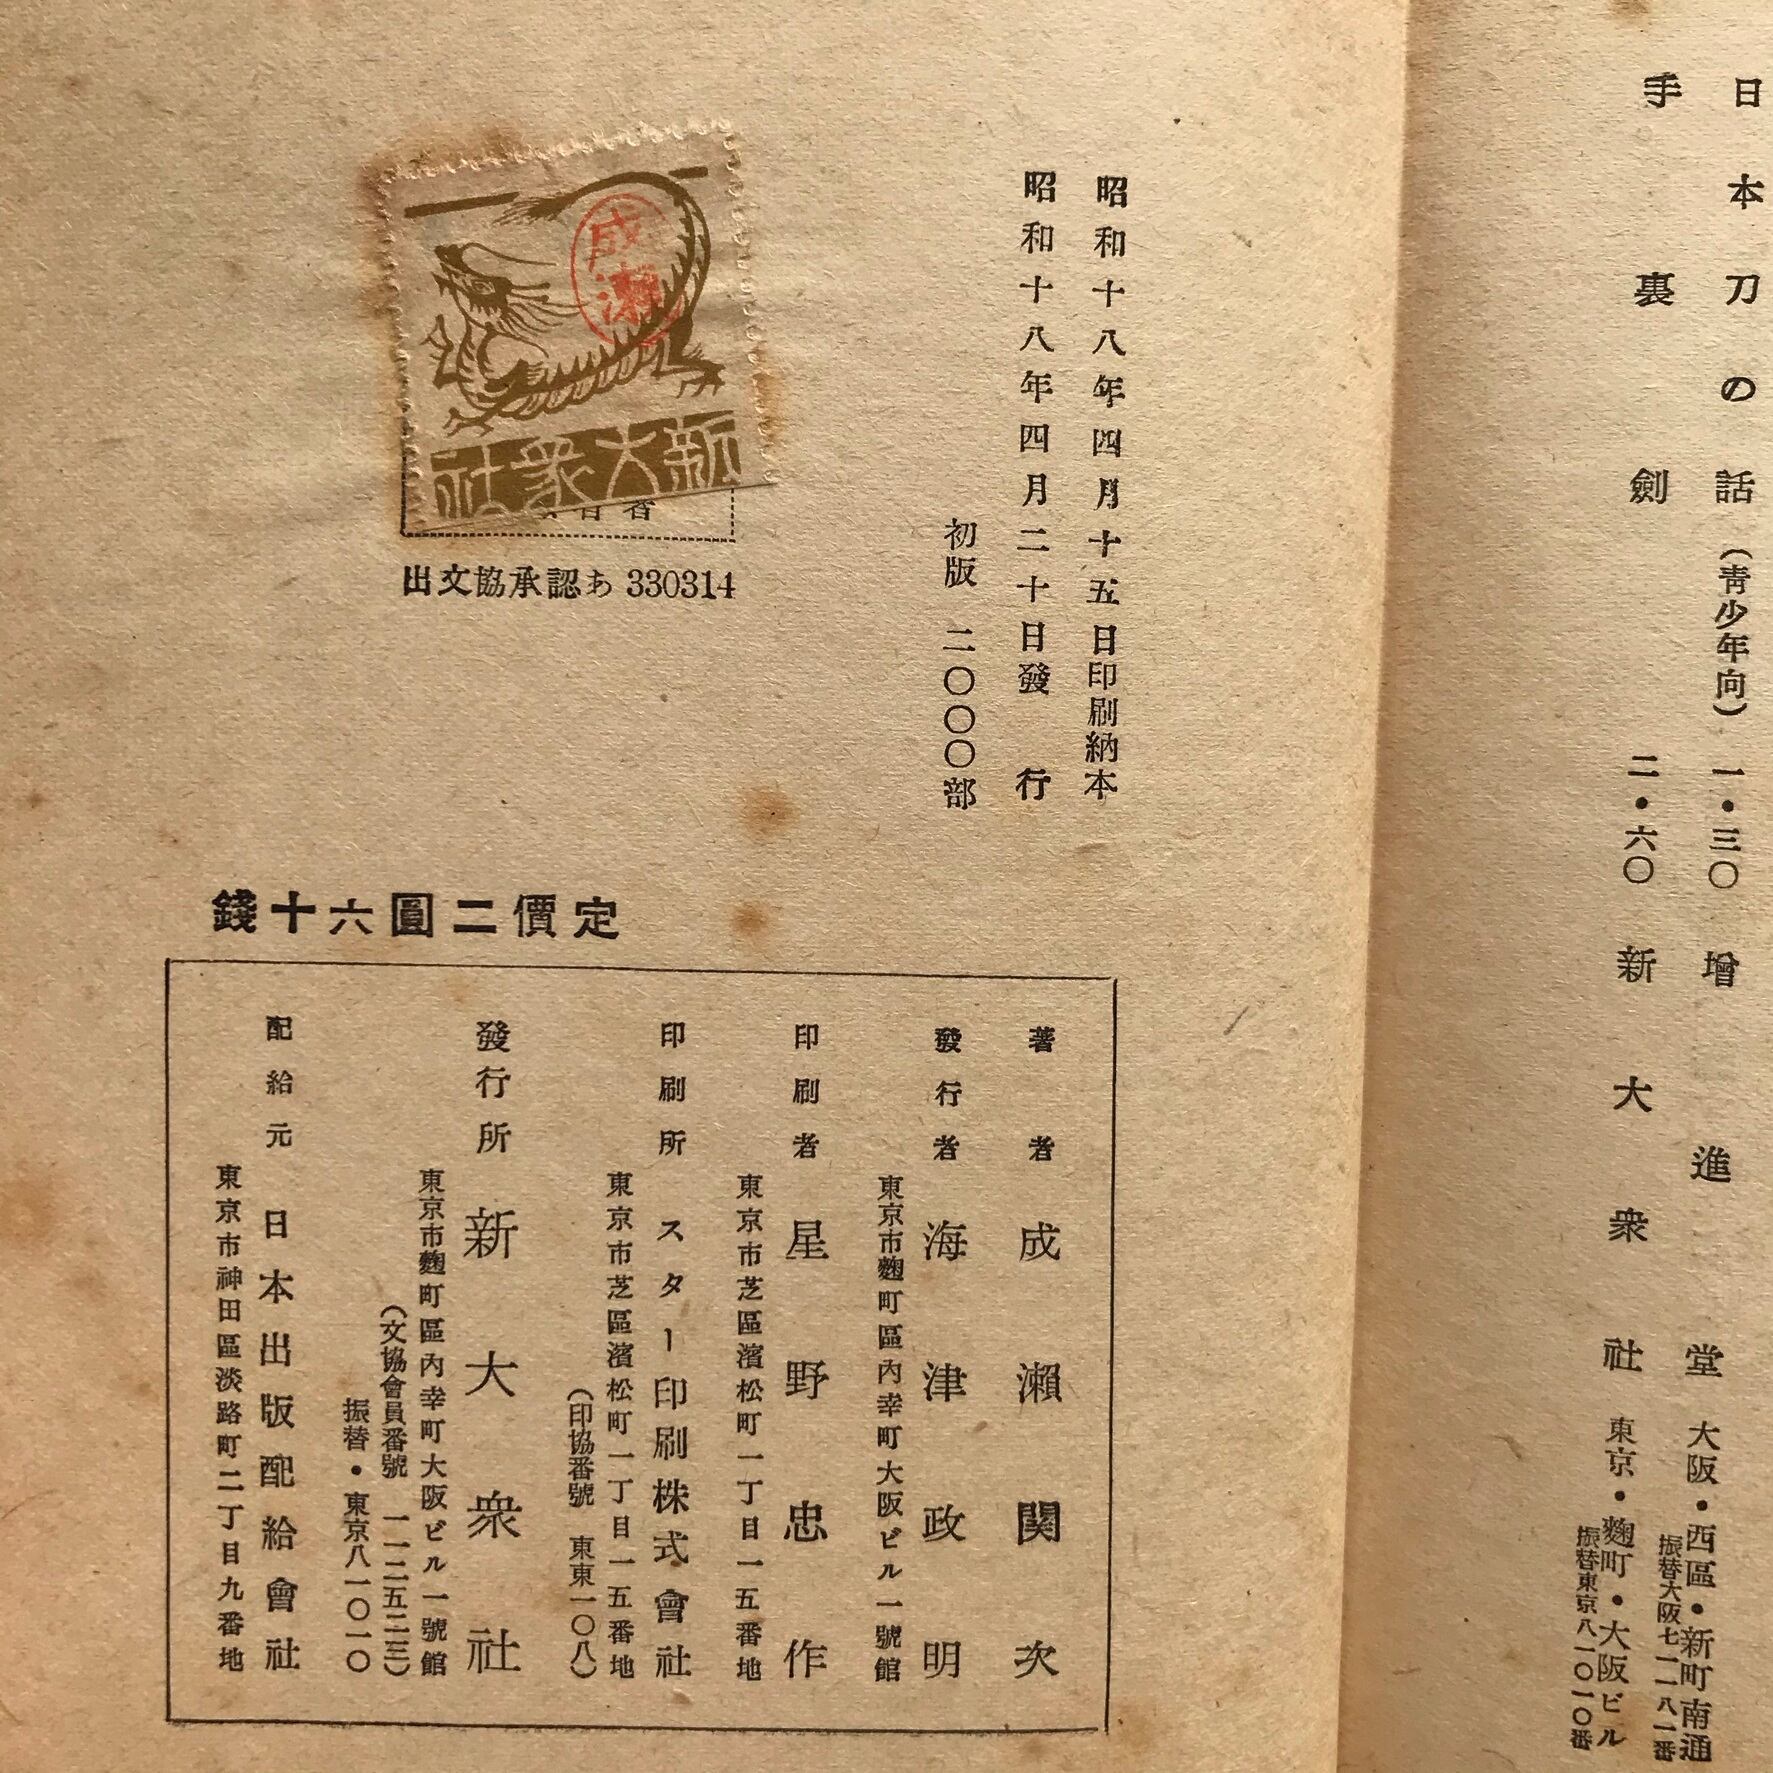 日本刀の話(靑少年向)一・三〇 增進堂 大阪・西區・新町南通
振替大阪七一一八一番
手裏劍 二・六〇 新大衆社 東京・麴町・大阪ビル
振替東京八一〇一〇番
昭和十八年四月十五日印刷納本
昭和十八年四月二十日發行
初版 二〇〇〇部
成瀨
新大衆社
出文協承認あ 330314
定價二圓六十錢
著者 成瀨関次
發行者 海津政明
東京市麴町區內幸町大阪ビル一號館
印刷者 星野忠作
東京市芝區濱松町一丁目一五番地
印刷所 スター印刷株式會社
東京市芝區濱松町一丁目一五番地
(印協番號 東東一〇八)
發行所 新大衆社
東京市麴町區內幸町大阪ビル一號館
(文協會員番號 一一二五二三)
振替・東京八一〇一〇
配給元 日本出版配給會社
東京市神田區淡路町二丁目九番地